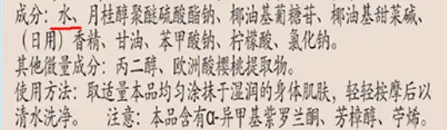 成分:水、月桂醇聚醚硫酸酯钠、椰油基葡糖苷、椰油基甜菜碱、
(日用)香精、甘油、苯甲酸钠、柠檬酸、氯化钠。
其他微量成分:丙二醇、欧洲酸樱桃提取物。
使用方法:取适量本品均匀涂抹于湿润的身体肌肤，轻轻按摩后以
清水洗净。 注意:本品含有α-异甲基紫罗兰酮、芳樟醇、苧烯。